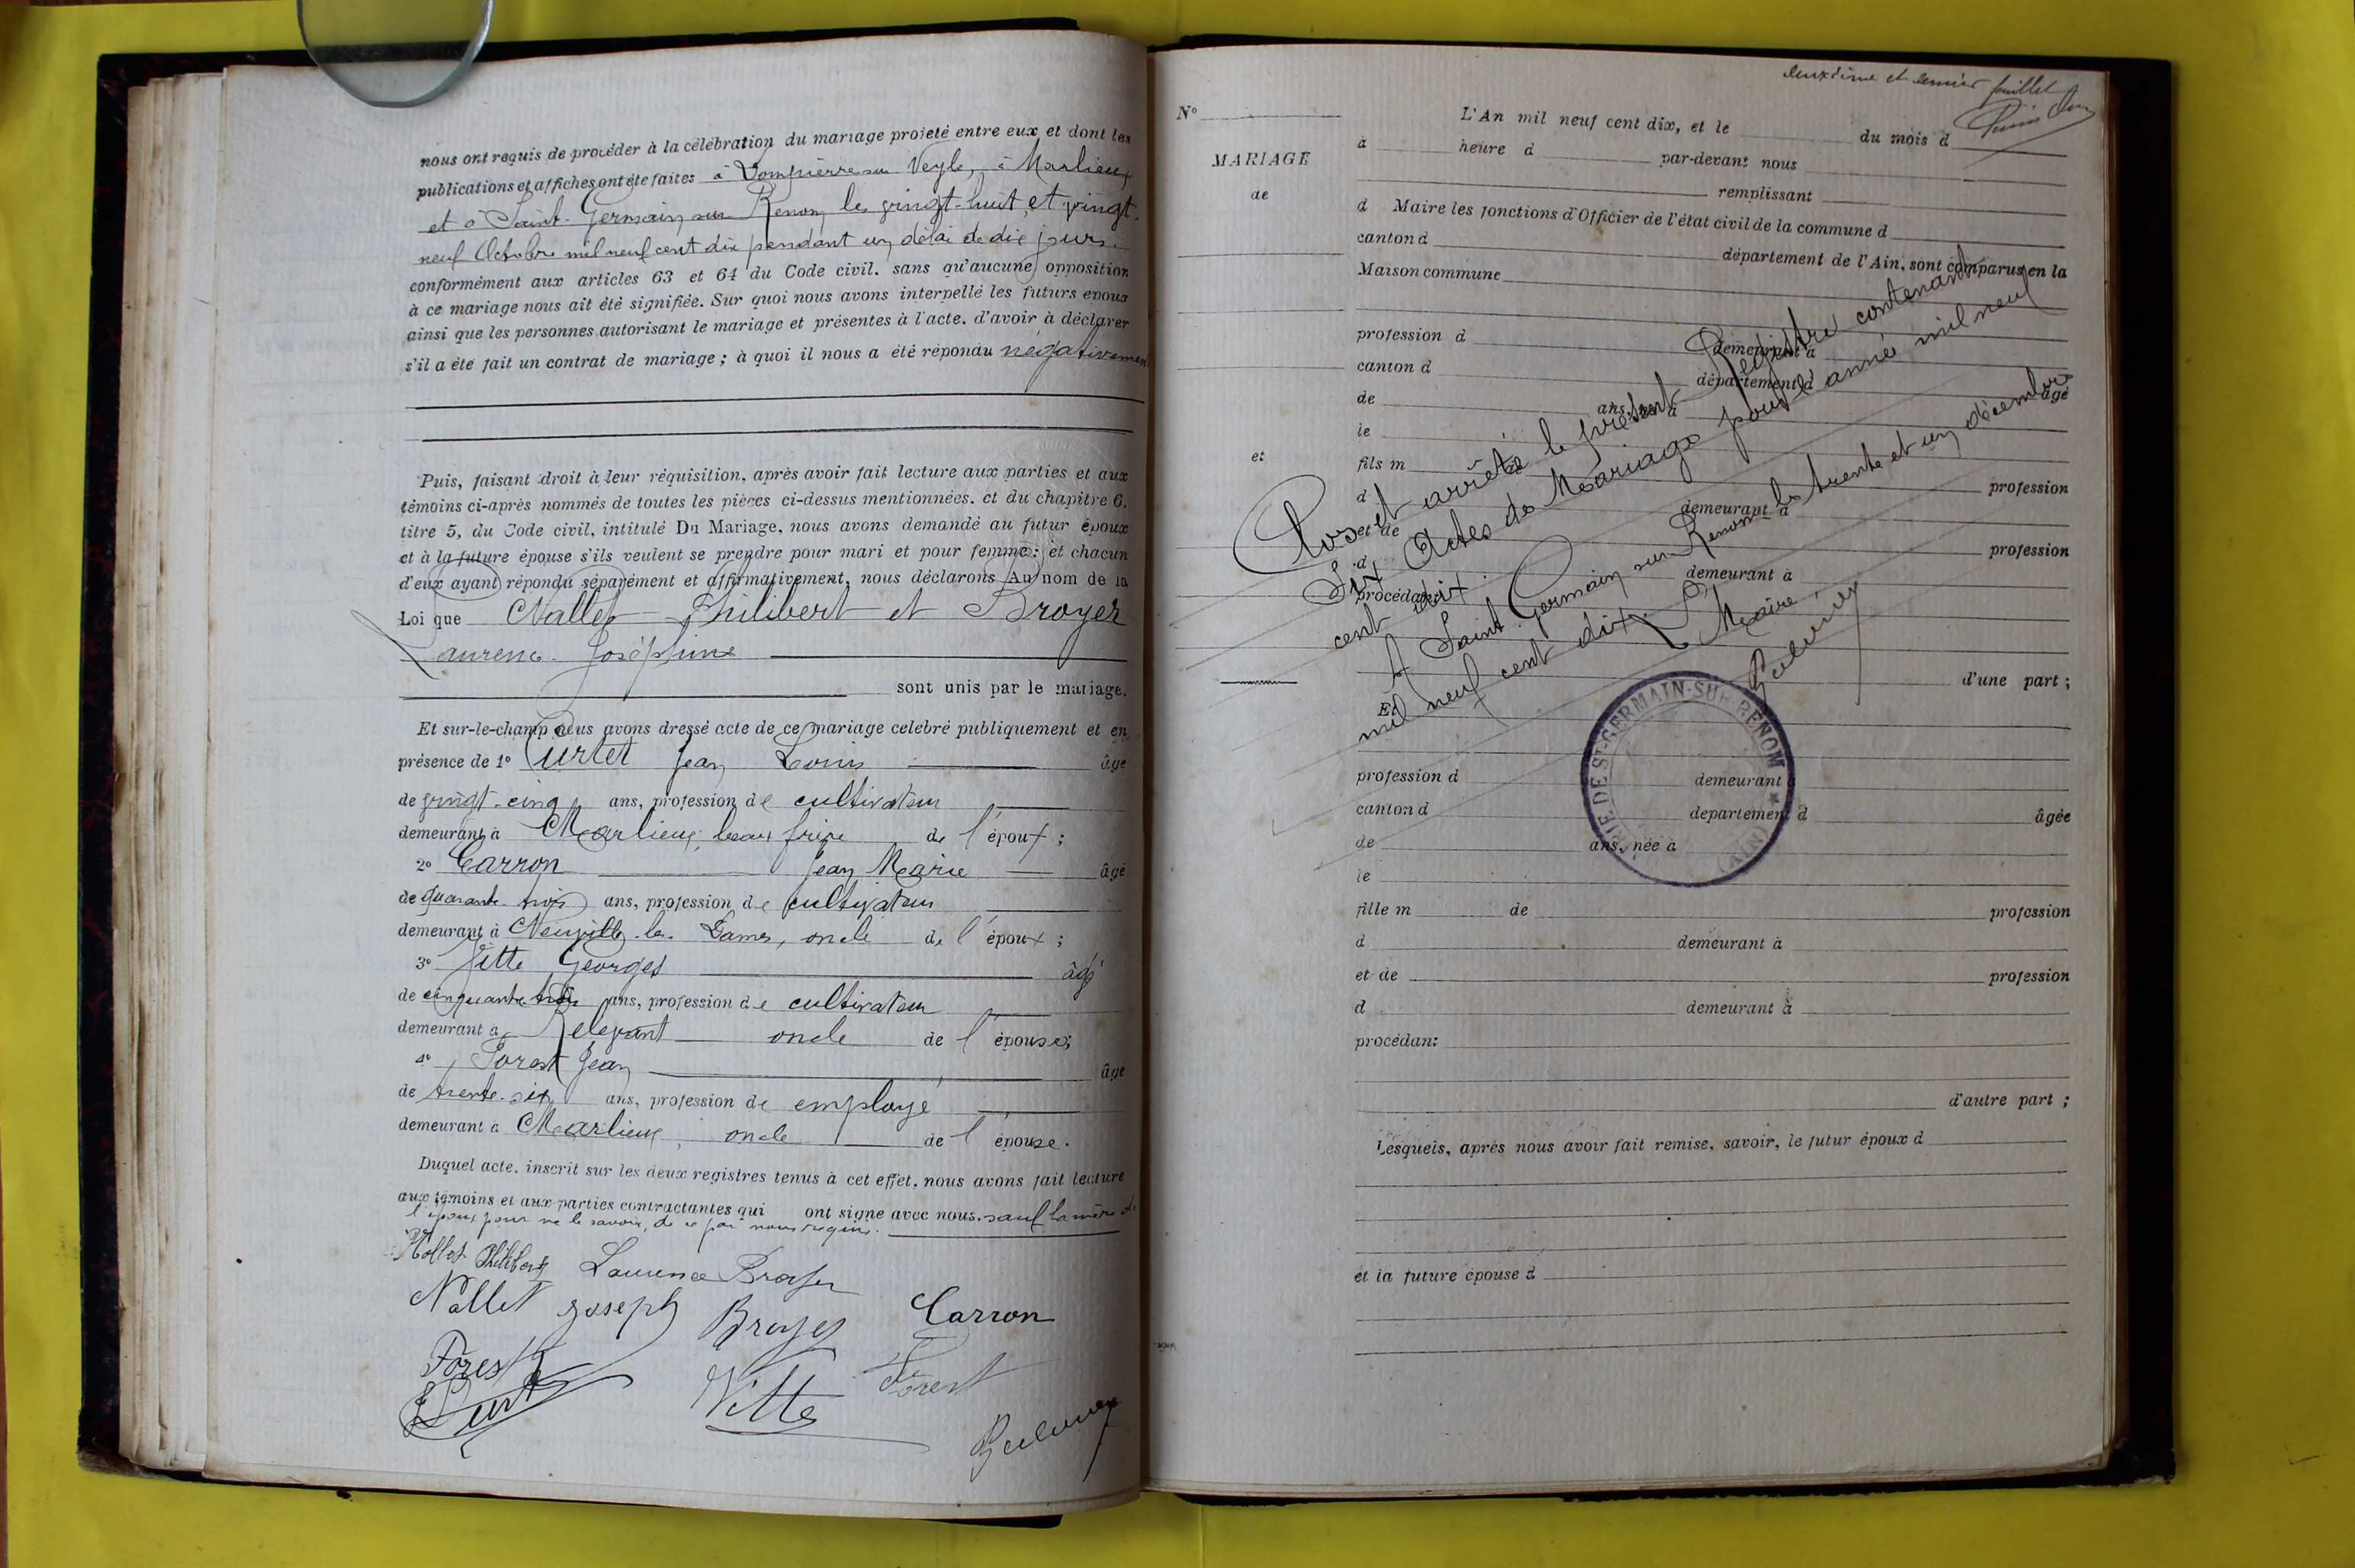 nous ont requis de procéder à la célébration du mariage projeté entre eux et dont les
publications et affiches ont été faites à Dompierre sur Veyle, à Marlieux
et à Saint-Germain sur Renon les vingt-huit et vingt-
neuf Octobre mil neuf cent dix pendant un délai de dix jours.
conformément aux articles 63 et 64 du Code civil. sans qu'aucune opposition
à ce mariage nous ait été signifiée. Sur quoi nous avons interpellé les futurs époux
ainsi que les personnes autorisant le mariage et présentes à l'acte. d'avoir à déclarer
s'il a été fait un contrat de mariage ; à quoi il nous a été répondu négativement
Puis, faisant droit à leur réquisition, après avoir fait lecture aux parties et aux
témoins ci-après nommés de toutes les pièces ci-dessus mentionnées. et du chapitre 6.
titre 5, du Code civil, intitulé Du Mariage, nous avons demandé au futur époux
et à la future épouse s'ils veulent se prendre pour mari et pour femme; et chacun
d'eux ayant répondu séparément et affirmativement, nous déclarons Au nom de la
Loi que Nallet Philibert et Broyer
Laurence Joséphine
sont unis par le mariage.
Et sur-le-champ nous avons dressé acte de ce mariage célébré publiquement et en
présence de 1° Curtet Jean Louis âgé
de vingt-cinq ans, profession de cultivateur
demeurant à Marlieux, beau frère de l'époux ;
2° Carron Jean Marie âgé
de quarante trois ans, profession de cultivateur
demeurant à Neuville-les-Dames, oncle de l'époux ;
3° Vitte Georges âgé
de cinquante trois ans, profession de cultivateur
demeurant à Relevant oncle de l'épouse;
4° Forest Jean âgé
de trente-six ans, profession de employé
demeurant à Marlieux, oncle de l'épouse.
Duquel acte, inscrit sur les deux registres tenus à cet effet, nous avons fait lecture
aux témoins et aux parties contractantes qui ont signé avec nous. sauf la mère de
l'époux pour ne le savoir, de ce par nous requis.
Nallet Philibert Laurence Broyer
Nallet Joseph Broyer Carron
Forest Vitte Forest
deuxième et dernier feuillet
N°
MARIAGE
de
et
L'An mil neuf cent dix, et le du mois d
à heure d par-devant nous
remplissant
d Maire les fonctions d'Officier de l'état civil de la commune d
canton d département de l'Ain, sont comparus en la
Maison commune
profession d demeurant à
canton d département d
de ans, né à âgé
le
fils m
d profession
et de demeurant à
d profession
procédant demeurant à
Clos et arrêté le présent Registre contenant
Six Actes de Mariage pour l'année mil neuf
cent dix.
A Saint Germain sur Renom le trente et un décembre
mil neuf cent dix.
Le Maire,
MAIRIE DE ST-GERMAIN-SUR-RENOM
(AIN)
d'une part ;
Et
profession d demeurant
canton d département d âgée
de ans, née à
le
fille m de profession
d demeurant à
et de profession
d demeurant à
procédant
d'autre part ;
Lesquels, après nous avoir fait remise, savoir, le futur époux d
et la future épouse d